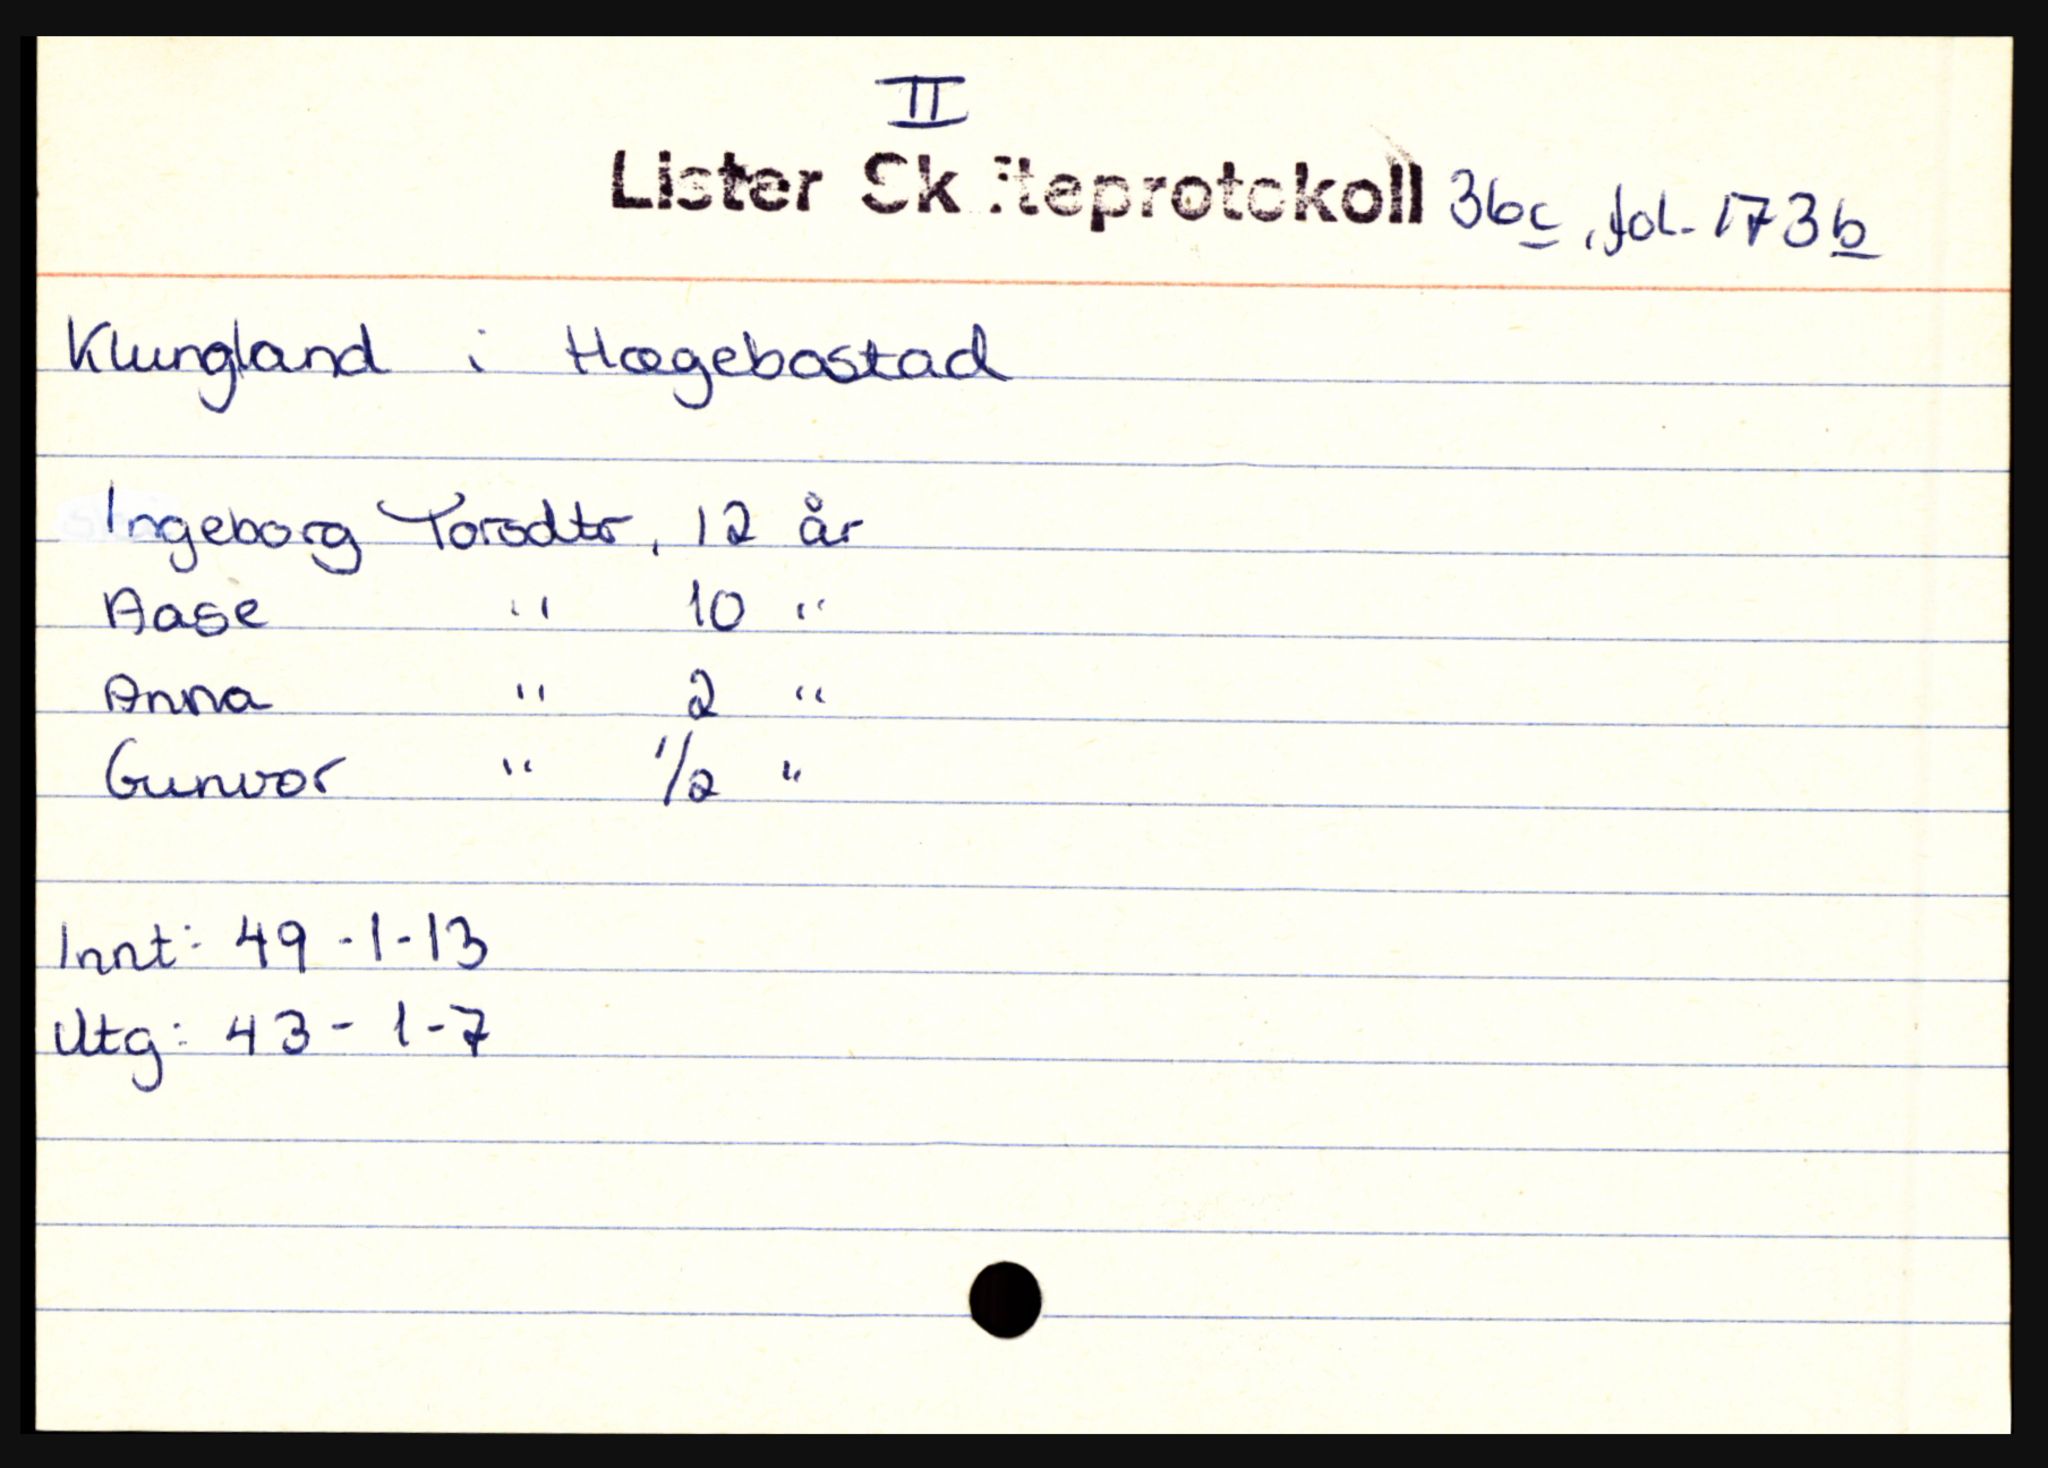 II
Lister Skifteprotokoll 36c, fol. 173b
Klungland i Hægebostad
Ingeborg Torsdtr, 12 år
Aase " 10 "
Anna " 2 "
Gunvor " 1/2 "
Innt: 49-1-13
Utg: 43-1-7